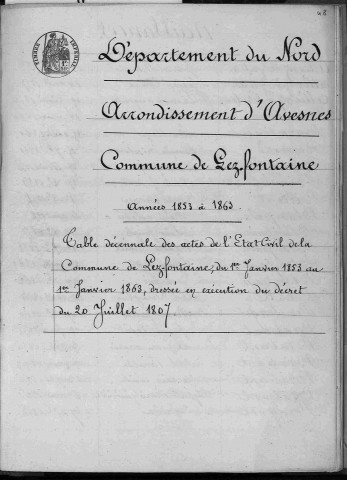 48
TIMBRE IMPERIAL
Département du Nord
Arrondissement d'Avesnes
Commune de Lez-fontaine
Années 1853 à 1863.
Table décennale des actes de l'Etat Civil de la
Commune de Lez-fontaine, du 1er Janvier 1853 au
1er Janvier 1863, dressée en exécution du décret
du 20 Juillet 1807.